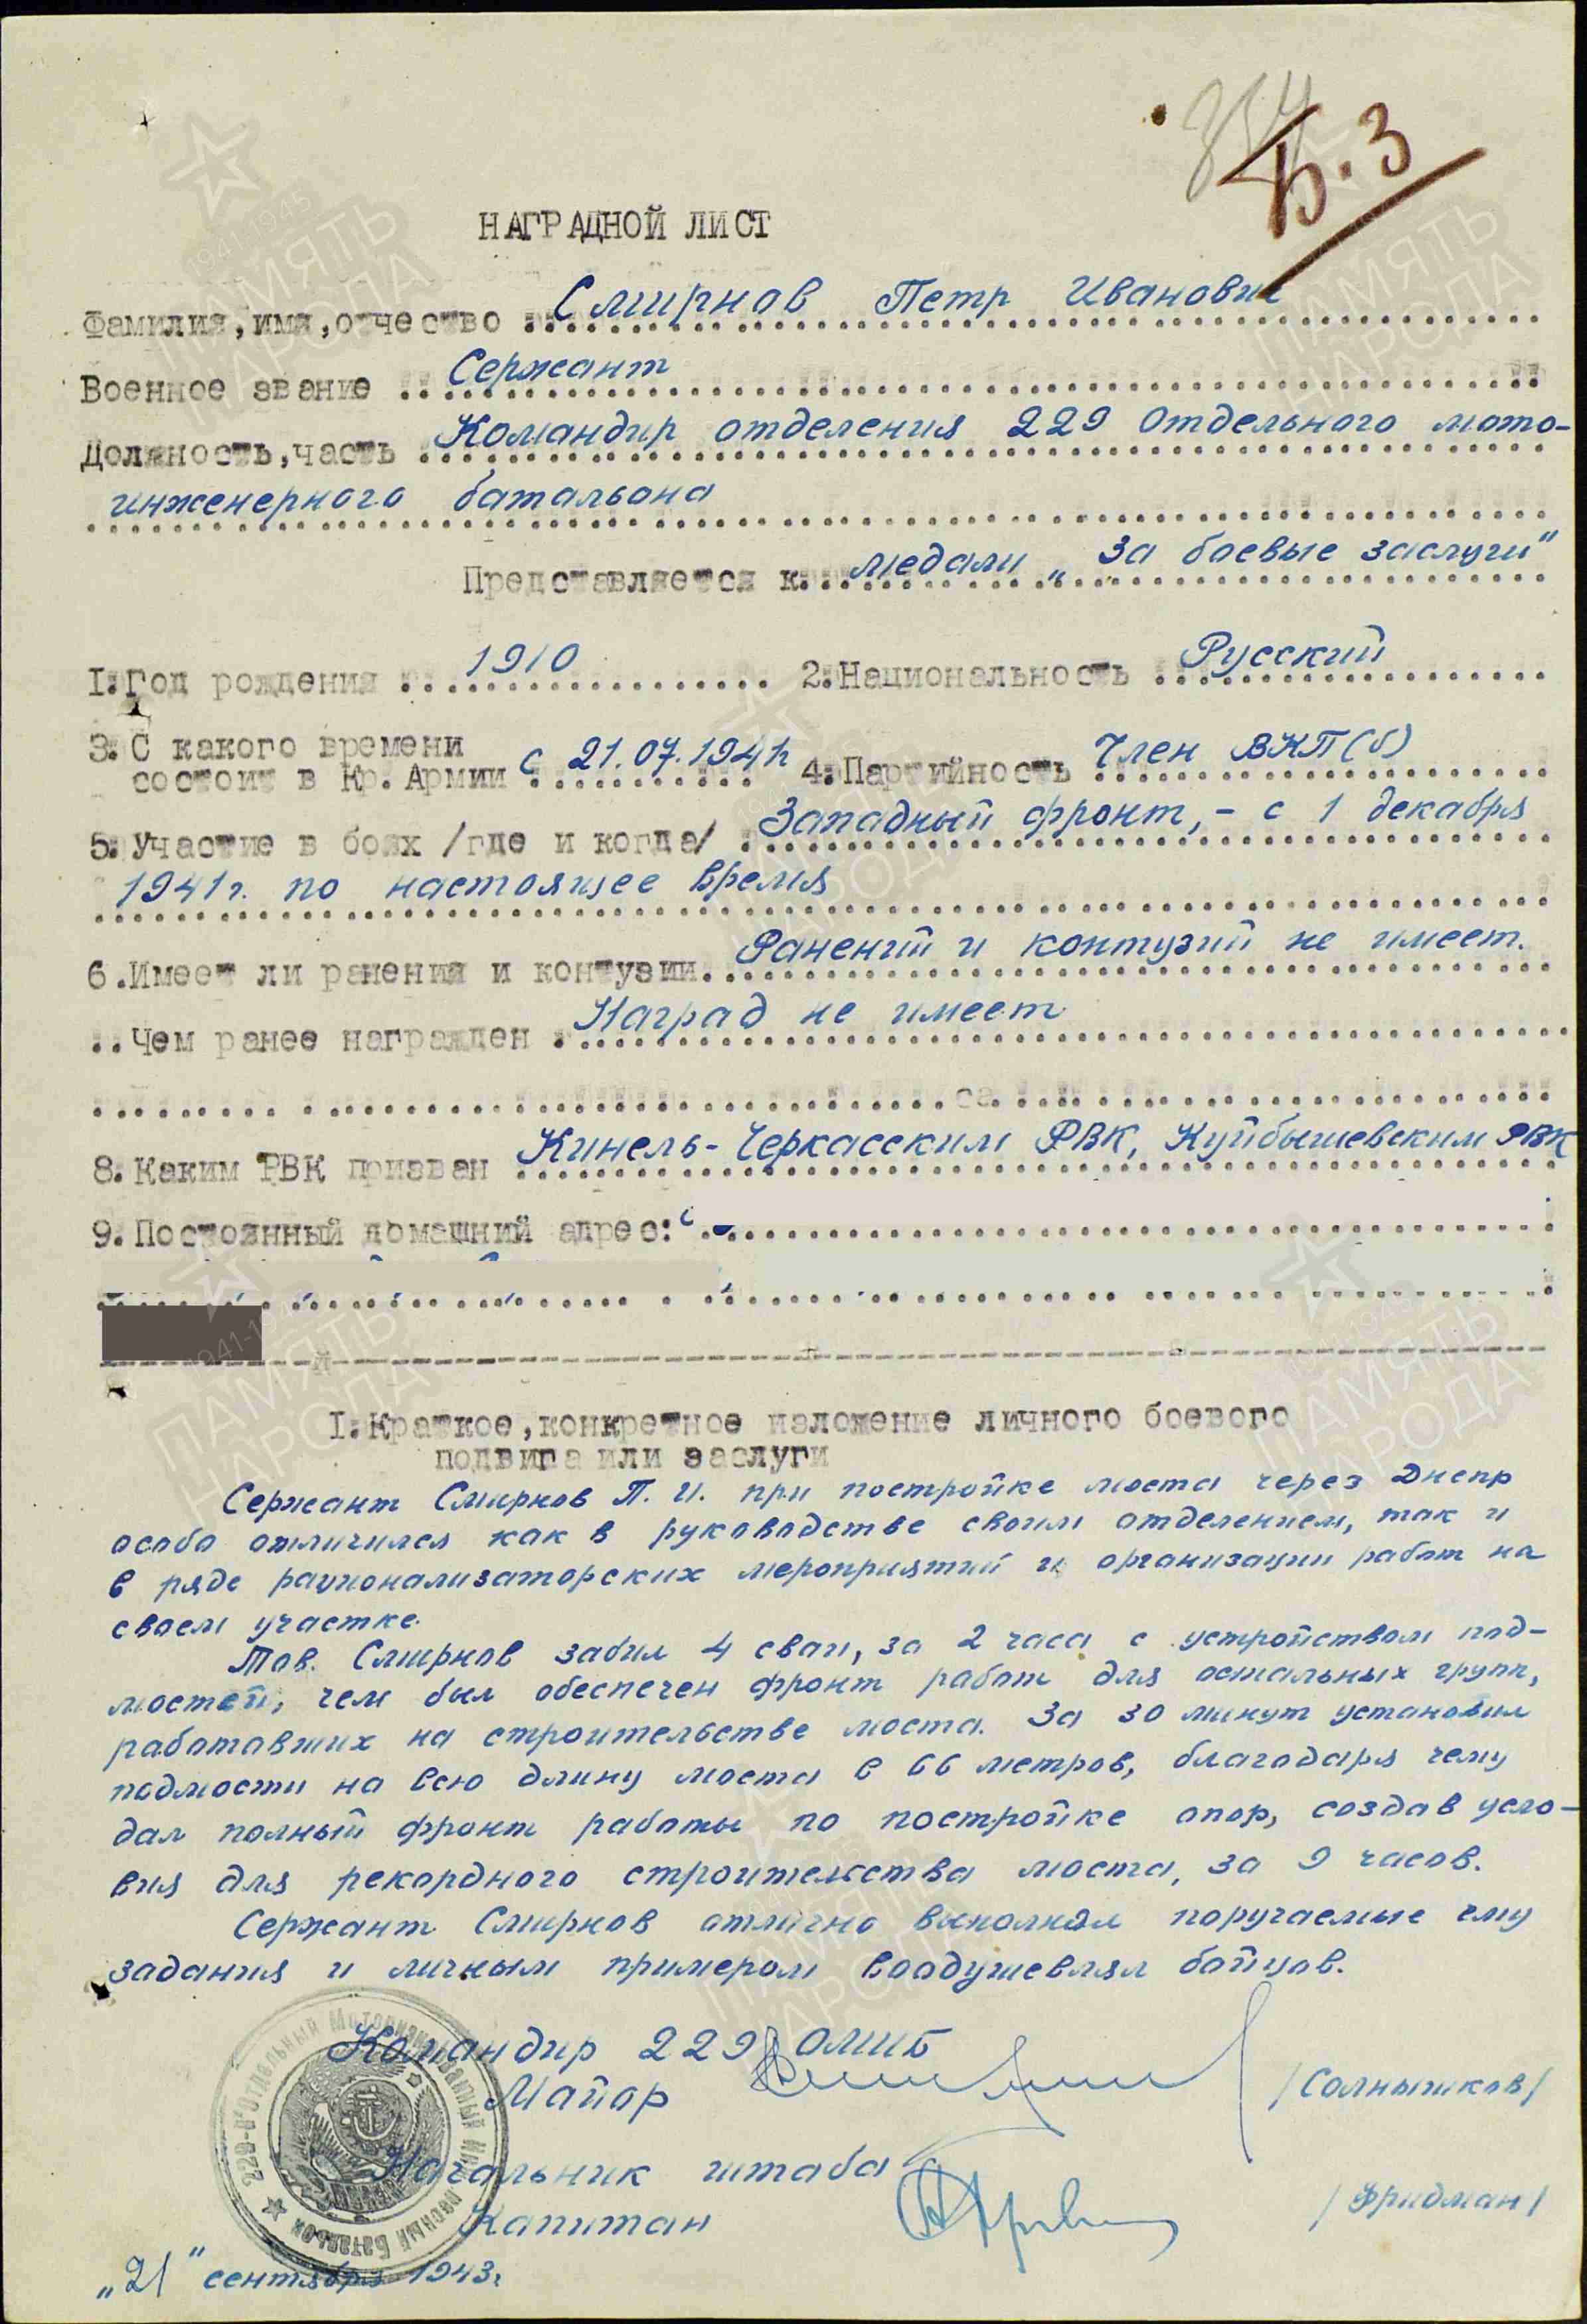 354
Б.З
НАГРАДНОЙ ЛИСТ
Фамилия, имя, отчество Смирнов Петр Иванович
Военное звание Сержант
Должность, часть Командир отделения 229 Отдельного мото-
инженерного батальона
Представляется к: медали „За боевые заслуги"
1. Год рождения 1910 2. Национальность Русский
3. С какого времени
состоит в Кр. Армии с 21.07.1941г 4. Партийность Член ВКП(б)
5. Участие в боях /где и когда/ Западный фронт, - с 1 декабря
1941г. по настоящее время
6. Имеет ли ранения и контузии. Ранений и контузий не имеет.
Чем ранее награжден Наград не имеет
8. Каким РВК призван Кинель-Черкасским РВК, Куйбышевским РВК
9. Постоянный домашний адрес:
I. Краткое, конкретное изложение личного боевого
подвига или заслуги
Сержант Смирнов П. И. при постройке моста через Днепр
особо отличился как в руководстве своим отделением, так и
в ряде рационализаторских мероприятий и организации работ на
своем участке.
Тов. Смирнов забил 4 сваи, за 2 часа с устройством под-
мостей, чем был обеспечен фронт работ для остальных групп,
работавших на строительстве моста. За 30 минут установил
подмости на всю длину моста в 66 метров, благодаря чему
дал полный фронт работы по постройке опор, создав усло-
вия для рекордного строительства моста, за 9 часов.
Сержант Смирнов отлично выполнял поручаемые ему
задания и личным примером воодушевлял бойцов.
Командир 229 ОМИБ
Майор /Солнышков/
Начальник штаба
Капитан /Фридман/
„21" сентября 1943г
229-й Отдельный Моторизованный Инженерный Батальон
1941-1945
ПАМЯТЬ
НАРОДА